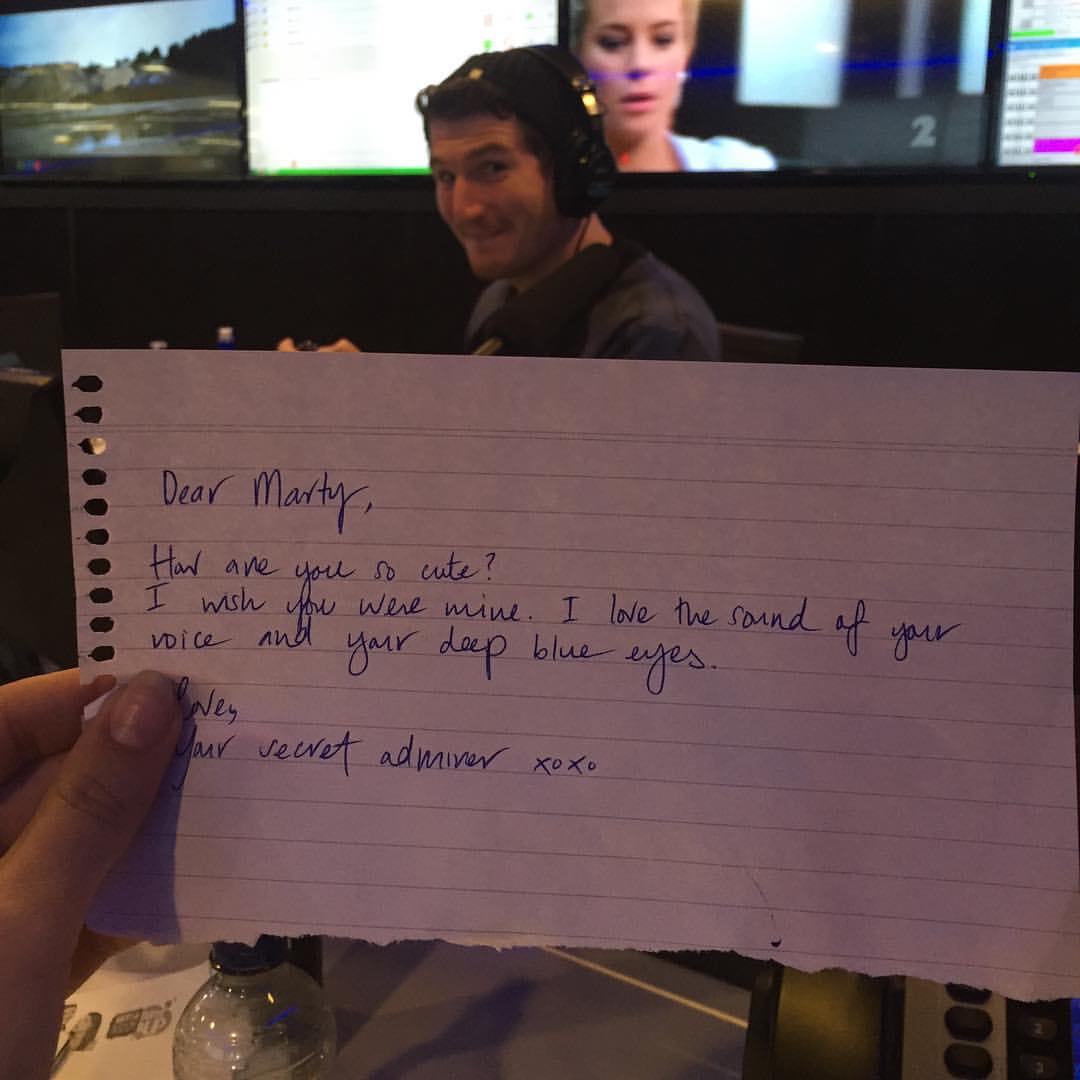 2
Dear Marty,
How are you so cute?
I wish you were mine. I love the sound of your
voice and your deep blue eyes.
Love,
Your secret admirer xoxo
2
3